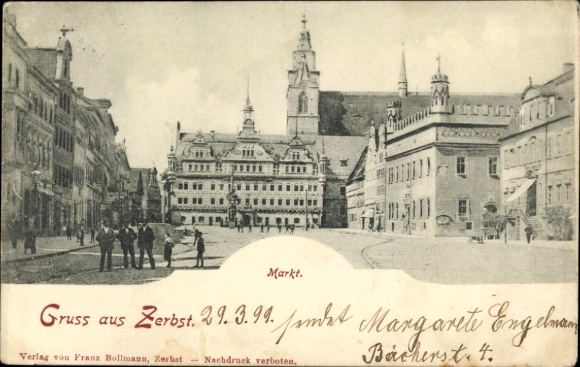 Markt.
Gruss aus Zerbst. 29.3.99. sendet Margarete Engelmann
Bächerst. 4.
Verlag von Franz Bollmann, Zerbst — Nachdruck verboten.